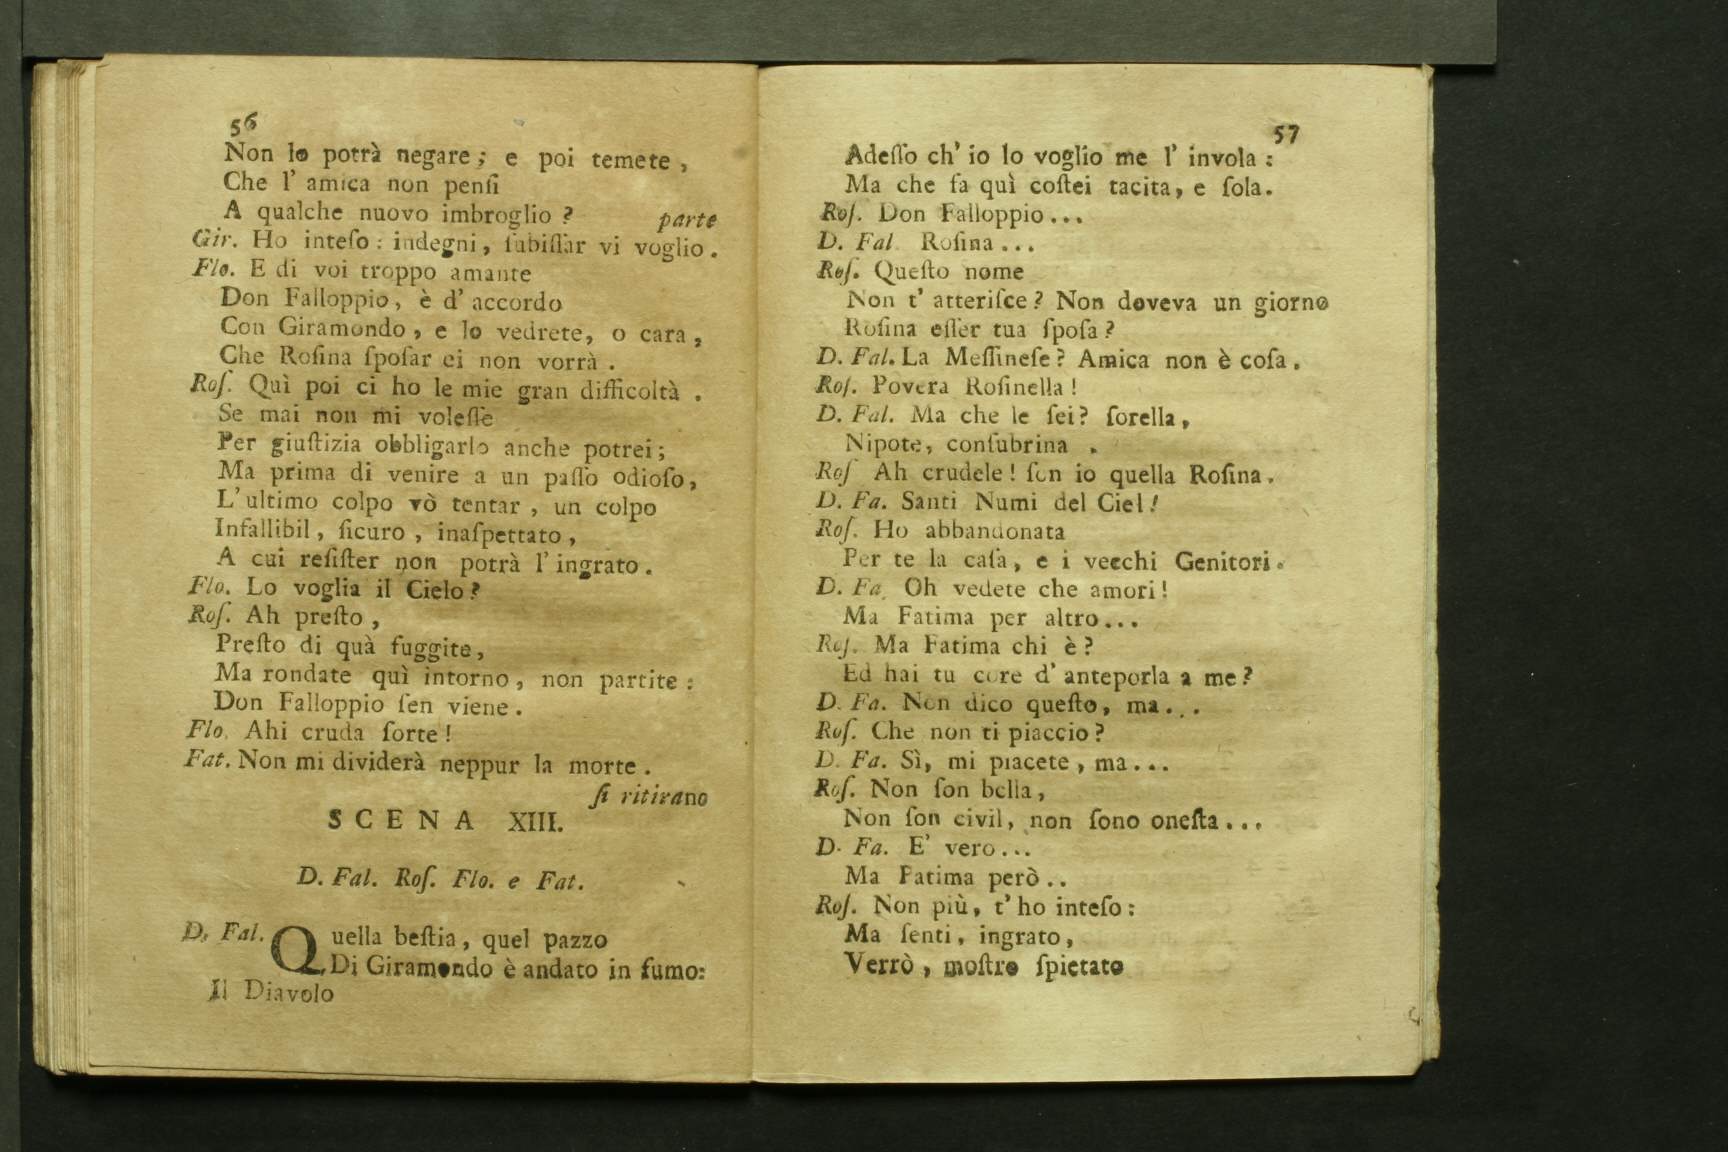 56
Non lo potrà negare; e poi temete,
Che l' amica non penſi
A qualche nuovo imbroglio? parte
Gir. Ho inteſo: indegni, ſubiſſar vi voglio.
Flo. E di voi troppo amante
Don Falloppio, è d' accordo
Con Giramondo, e lo vedrete, o cara,
Che Roſina ſpoſar ei non vorrà.
Roſ. Quì poi ci ho le mie gran difficoltà.
Se mai non mi voleſſe
Per giuſtizia obbligarlo anche potrei;
Ma prima di venire a un paſſo odioſo,
L' ultimo colpo vò tentar, un colpo
Infallibil, ſicuro, inaſpettato,
A cui reſiſter non potrà l' ingrato.
Flo. Lo voglia il Cielo?
Roſ. Ah preſto,
Preſto di quà fuggite,
Ma rondate quì intorno, non partite:
Don Falloppio ſen viene.
Flo. Ahi cruda ſorte!
Fat. Non mi dividerà neppur la morte.
ſi ritirano
SCENA XIII.
D. Fal. Roſ. Flo. e Fat.
D. Fal. Quella beſtia, quel pazzo
Di Giramondo è andato in fumo:
Il Diavolo
57
Adeſſo ch' io lo voglio me l' invola:
Ma che fa quì coſtei tacita, e ſola.
Roſ. Don Falloppio...
D. Fal. Roſina...
Roſ. Queſto nome
Non t' atteriſce? Non doveva un giorno
Roſina eſſer tua ſpoſa?
D. Fal. La Meſſineſe? Amica non è coſa.
Roſ. Povera Roſinella!
D. Fal. Ma che le ſei? ſorella,
Nipote, conſubrina.
Roſ Ah crudele! ſon io quella Roſina.
D. Fa. Santi Numi del Ciel!
Roſ. Ho abbandonata
Per te la caſa, e i vecchi Genitori.
D. Fa. Oh vedete che amori!
Ma Fatima per altro...
Roſ. Ma Fatima chi è?
Ed hai tu core d' anteporla a me?
D. Fa. Non dico queſto, ma...
Roſ. Che non ti piaccio?
D. Fa. Sì, mi piacete, ma...
Roſ. Non ſon bella,
Non ſon civil, non ſono oneſta...
D. Fa. E' vero...
Ma Fatima però..
Roſ. Non più, t' ho inteſo:
Ma ſenti, ingrato,
Verrò, moſtro ſpietato